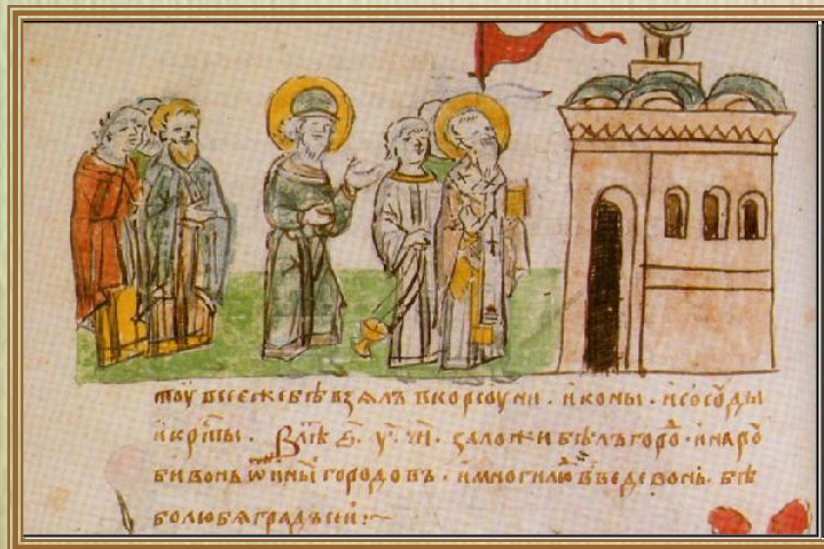 тоу всеежебѣ взѧлъ вкорсоуни . иконы . исосоуды
икрⷭ҇ты . Влѣⷮ ҂ѕ҃ . у҃ . заложи бѣлъгороⷣ . инаро
бивонь ѿины городовъ . имногилюⷣ введе вонь . бѣ
болюбѧ градъсии :~